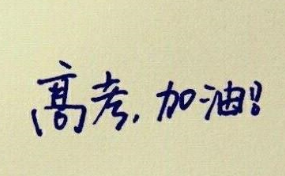 高考,加油!